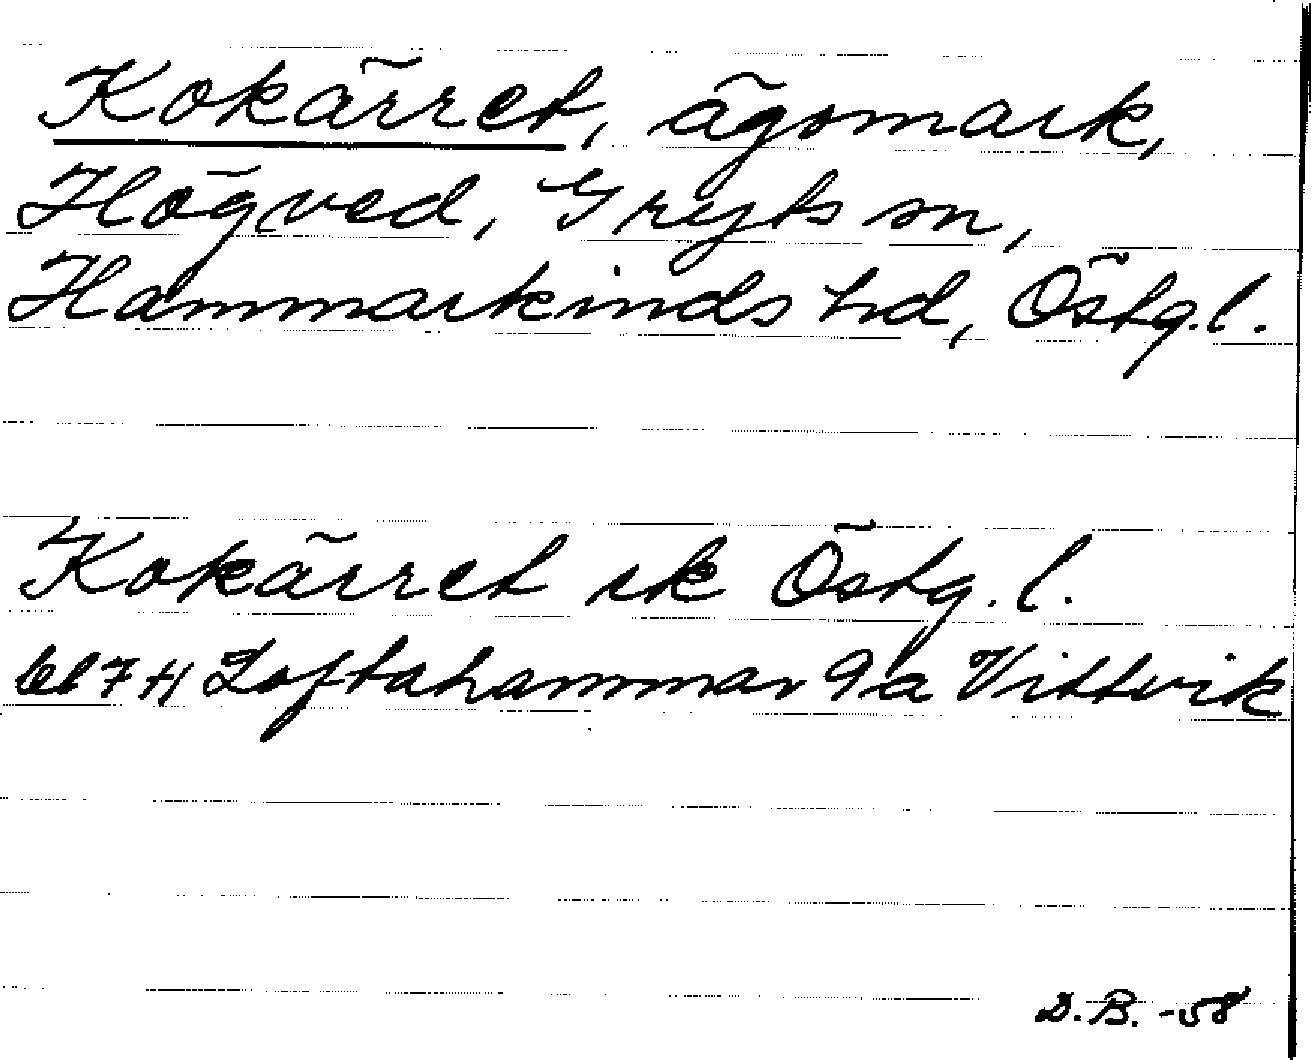 Kokärret, ägomark,
Högved, Gryts sn,
Hammarkinds hd, Östg.l.
Kokärret ek Östg.l.
bl 7H Loftahammar 9a Vittvik
D.B. -58